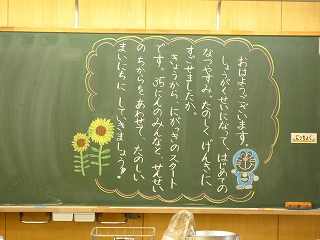 おはようございます。
しょうがくせいになって、はじめての
なつやすみ。たのしく げんきに
すごせましたか。
きょうから、にがっきのスタート
です。35にんのみんなと、せんせい
の ちからを あわせて、たのしい
まいにちに していきましょう!!